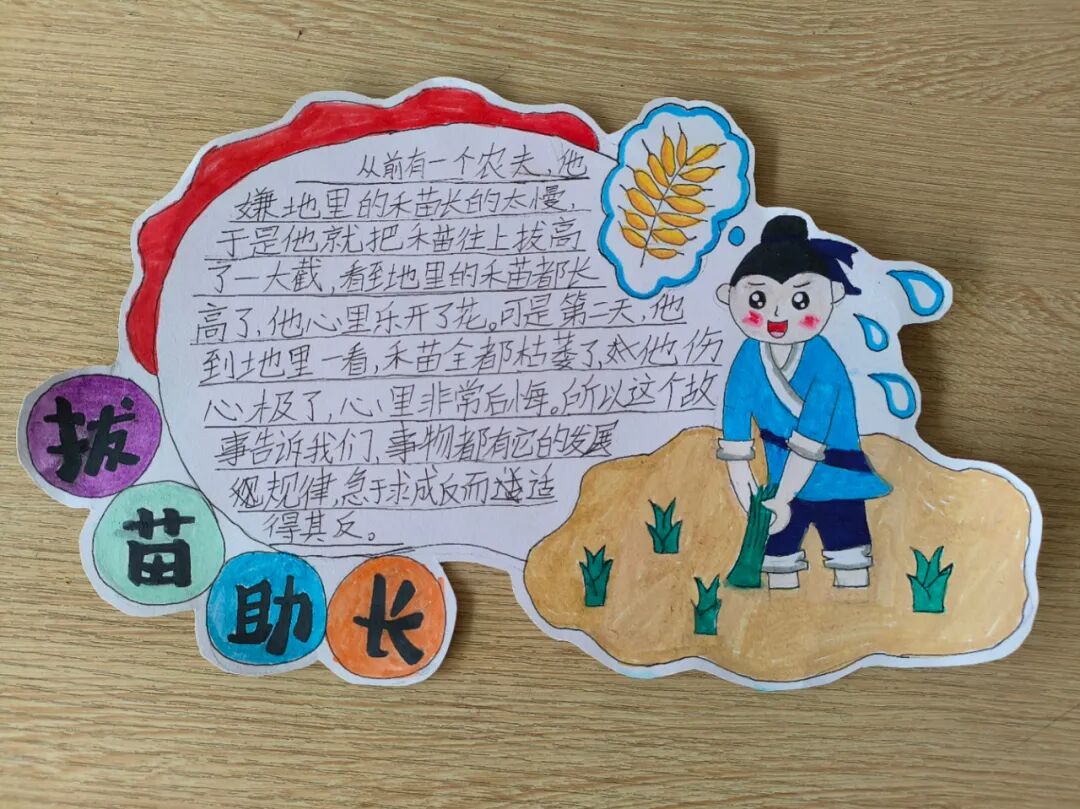 从前有一个农夫，他
嫌地里的禾苗长的太慢，
于是他就把禾苗往上拔高
了一大截，看到地里的禾苗都长
高了，他心里乐开了花。可是第二天，他
到地里一看，禾苗全都枯萎了，他，伤
心极了，心里非常后悔。所以这个故
事告诉我们，事物都有它的发展
规律，急于求成反而适
得其反。
拔
苗
助
长